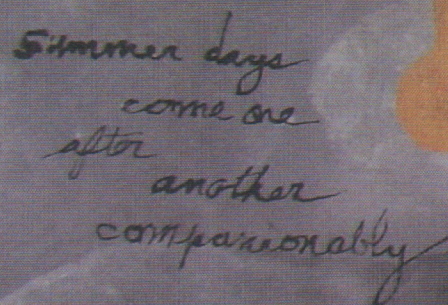 summer days
come one
after
another
companionably